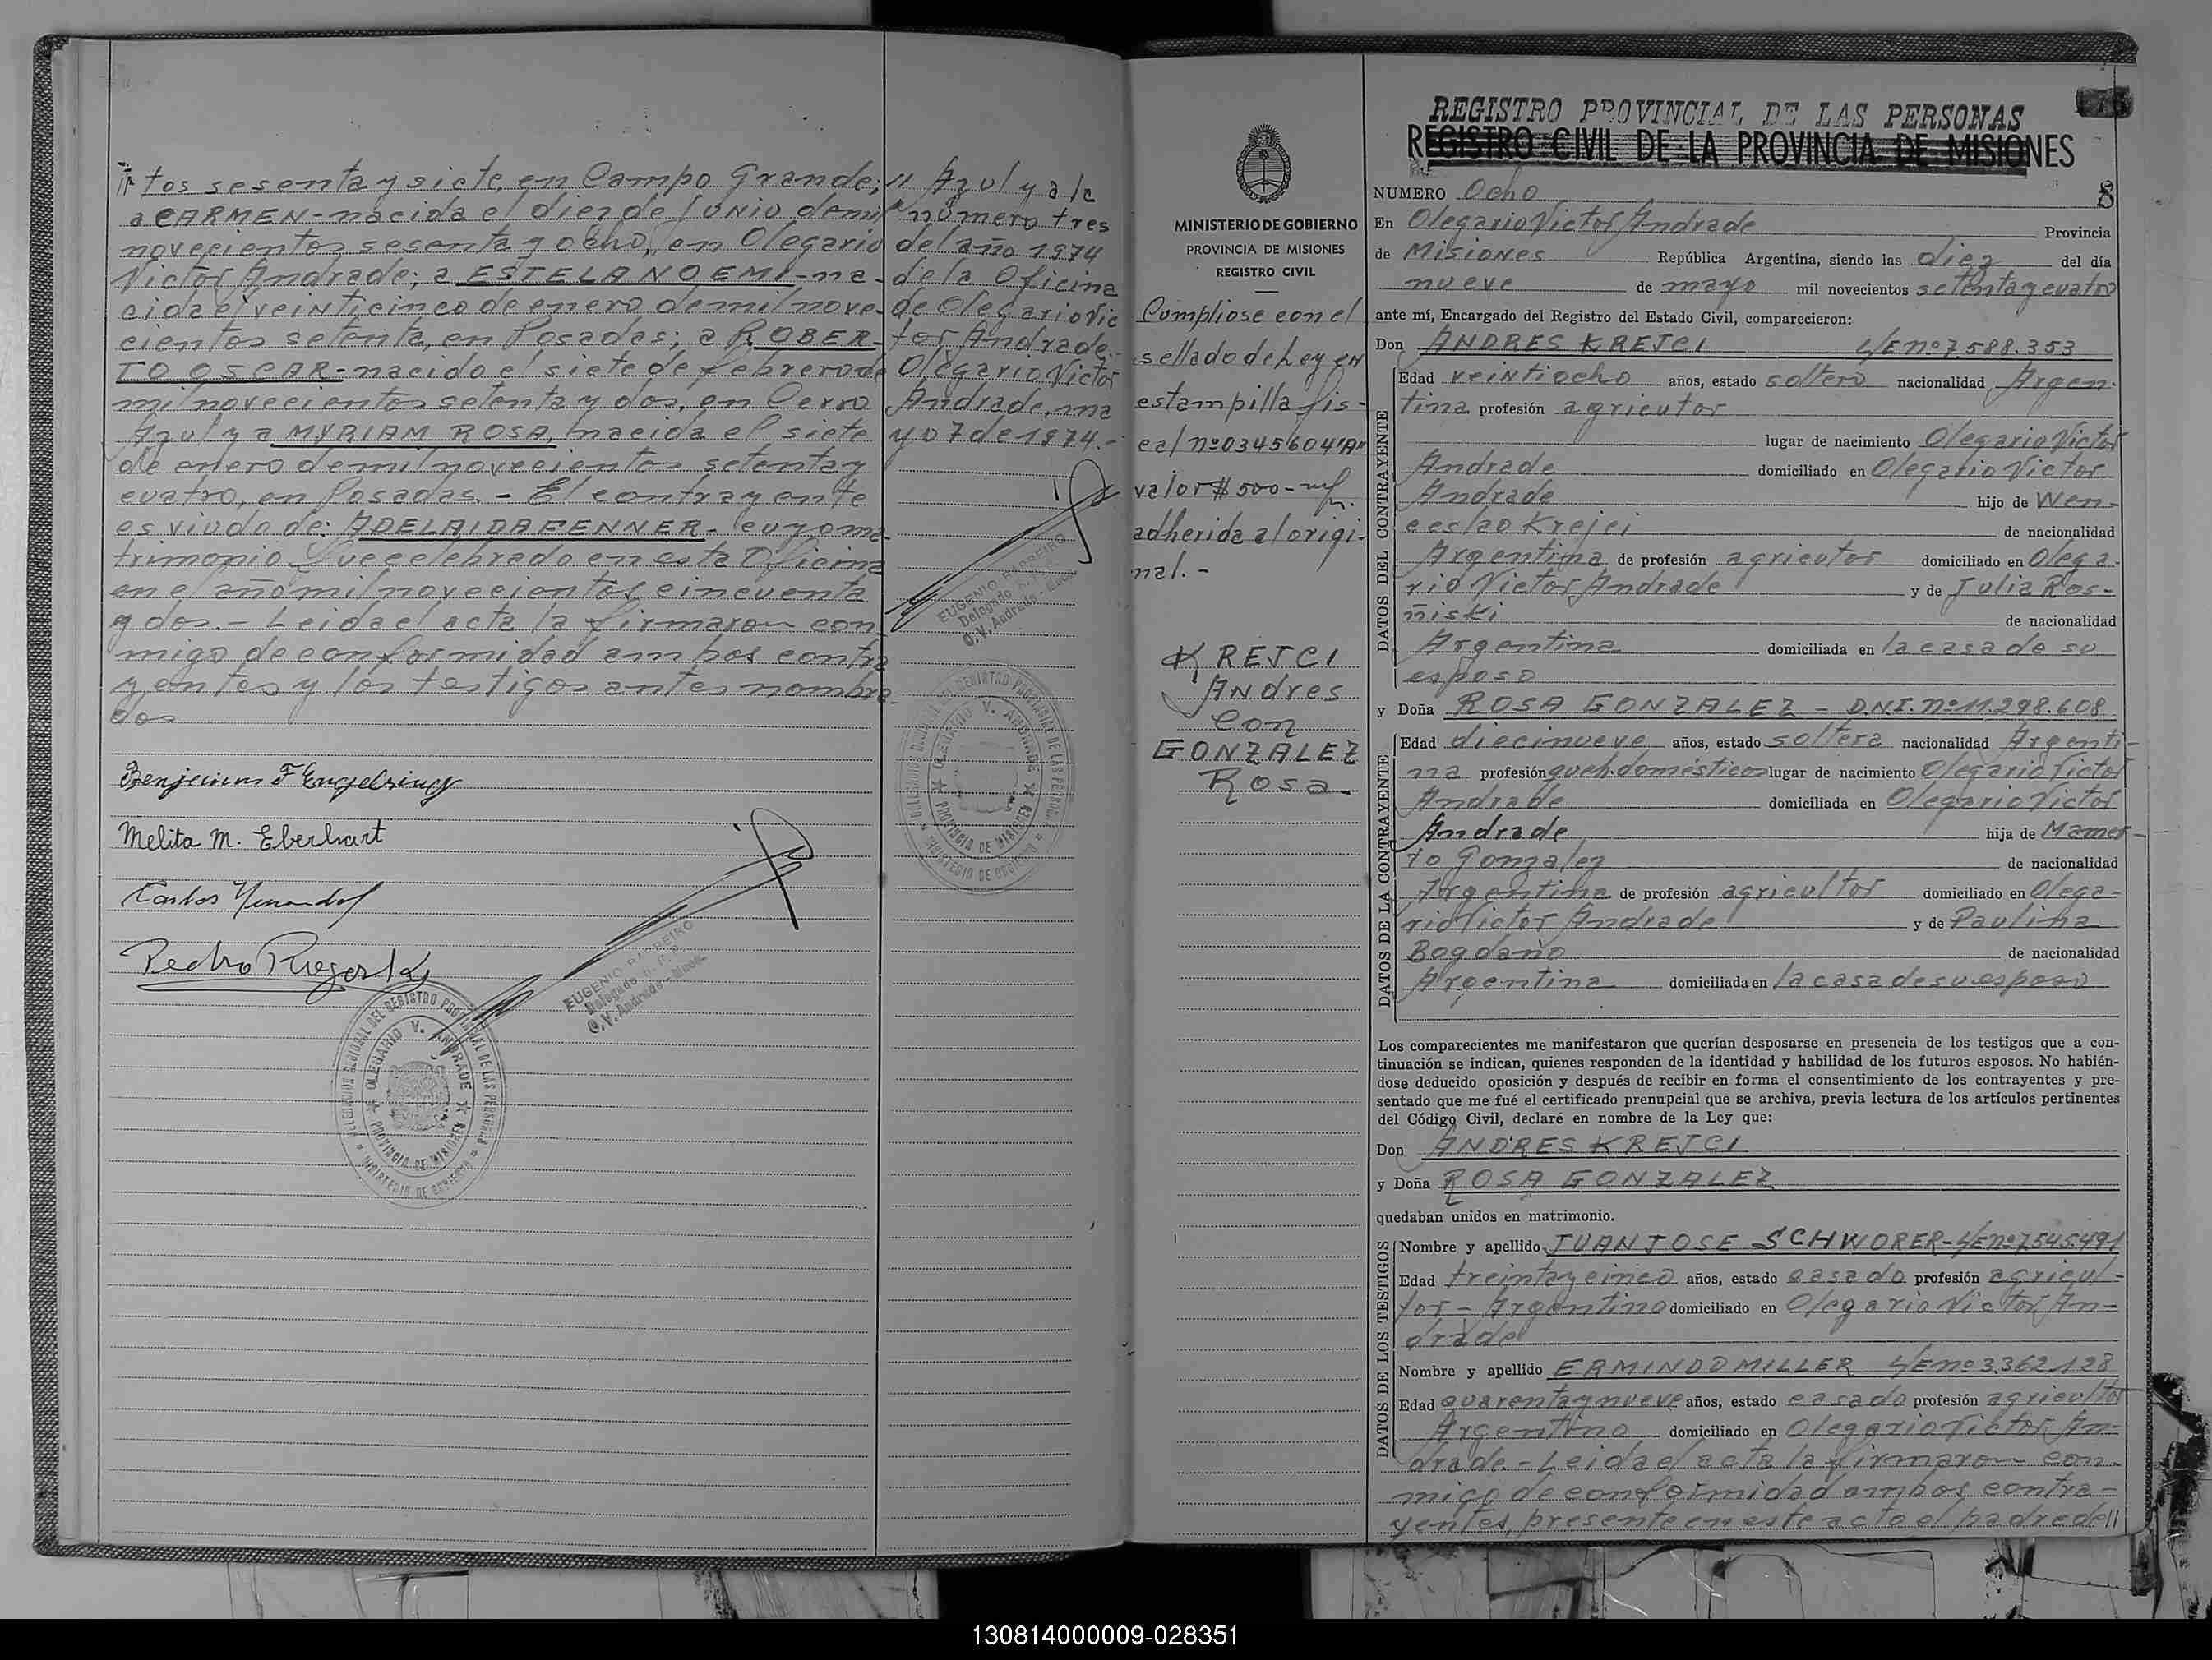 tos sesenta y siete, en Campo Grande;
a CARMEN - nacida el diez de junio de mil
novecientos sesenta y ocho, en Olegario
Victor Andrade; a ESTELA NOEMI - na-
cida el veinticinco de enero de mil nove-
cientos setenta, en Posadas; a ROBER-
TO OSCAR - nacido el siete de febrero de
mil novecientos setenta y dos, en Cerro
Azul y a MYRIAM ROSA, nacida el siete
de enero de mil novecientos setenta y
cuatro, en Posadas. - El contrayente
es viudo de: ADELAIDA FENNER - cuyo ma-
trimonio fue celebrado en esta Oficina
en el año mil novecientos cincuenta
y dos. - Leida el acta la firmaron con-
migo de conformidad ambos contra
yentes y los testigos antes nombra-
dos
Benjamin F Engelsing
Melita M. Eberhart
Carlos
Pedro
EUGENIO BARREIRO
Delegado R. P. P.
O. V. Andrade - Mnes.
DELEGACION REGIONAL DEL REGISTRO PROVINCIAL DE LAS PERSONAS
OLEGARIO V. ANDRADE
PROVINCIA DE MISIONES
MINISTERIO DE GOBIERNO
" Azul y a la
número tres
del año 1974
de la Oficina
de Olegario Vic
tor Andrade.-
Olegario Victor
Andrade, ma
yo 7 de 1974.-
EUGENIO BARREIRO
Delegado R. P. P.
O. V. Andrade - Mnes.
DELEGACION REGIONAL DEL REGISTRO PROVINCIAL DE LAS PERSONAS
OLEGARIO V. ANDRADE
PROVINCIA DE MISIONES
MINISTERIO DE GOBIERNO
MINISTERIO DE GOBIERNO
PROVINCIA DE MISIONES
REGISTRO CIVIL
Cumpliose con el
sellado de Ley en
estampilla fis-
cal nº 0345604 "A"
valor $ 500 - m/n.
adherida al origi-
nal. -
KREJCI
Andres
Con
GONZALEZ
Rosa
REGISTRO PROVINCIAL DE LAS PERSONAS
REGISTRO CIVIL DE LA PROVINCIA DE MISIONES
NUMERO Ocho 8
En Olegario Victor Andrade Provincia
de Misiones República Argentina, siendo las diez del día
nueve de mayo mil novecientos setenta y cuatro
ante mí, Encargado del Registro del Estado Civil, comparecieron:
Don ANDRES KREJCI L/E nº 7.588.353
DATOS DEL CONTRAYENTE
Edad veintiocho años, estado soltero nacionalidad Argen-
tina profesión agricutor
lugar de nacimiento Olegario Victor
Andrade domiciliado en Olegario Victor
Andrade hijo de Wen-
ceslao Krejci de nacionalidad
Argentina de profesión agricutor domiciliado en Olega-
rio Victor Andrade y de Julia Ros-
niski de nacionalidad
Argentina domiciliada en la casa de su
esposo
y Doña ROSA GONZALEZ - D.N.I. nº 11.298.608
DATOS DE LA CONTRAYENTE
Edad diecinueve años, estado soltera nacionalidad Argenti-
na profesión queh. domésticos lugar de nacimiento Olegario Victor
Andrade domiciliada en Olegario Victor
Andrade hija de Mamer-
to Gonzalez de nacionalidad
Argentina de profesión agricultor domiciliado en Olega-
rio Victor Andrade y de Paulina
Bogdano de nacionalidad
Argentina domiciliada en la casa de su esposo
Los comparecientes me manifestaron que querían desposarse en presencia de los testigos que a con-
tinuación se indican, quienes responden de la identidad y habilidad de los futuros esposos. No habién-
dose deducido oposición y después de recibir en forma el consentimiento de los contrayentes y pre-
sentado que me fué el certificado prenupcial que se archiva, previa lectura de los artículos pertinentes
del Código Civil, declaré en nombre de la Ley que:
Don ANDRES KREJCI
y Doña ROSA GONZALEZ
quedaban unidos en matrimonio.
DATOS DE LOS TESTIGOS
Nombre y apellido JUAN JOSE SCHWORER - L/E nº 7.545.491
Edad treinta y cinco años, estado casado profesión agricul-
tor - Argentino domiciliado en Olegario Victor An-
drade
Nombre y apellido ERMINDO MILLER L/E nº 3.362.128
Edad cuarenta y nueve años, estado casado profesión agricultor
Argentino domiciliado en Olegario Victor An-
drade. - Leida el acta la firmaron con-
migo de conformidad ambos contra-
yentes, presente en este acto el padre de //
130814000009-028351